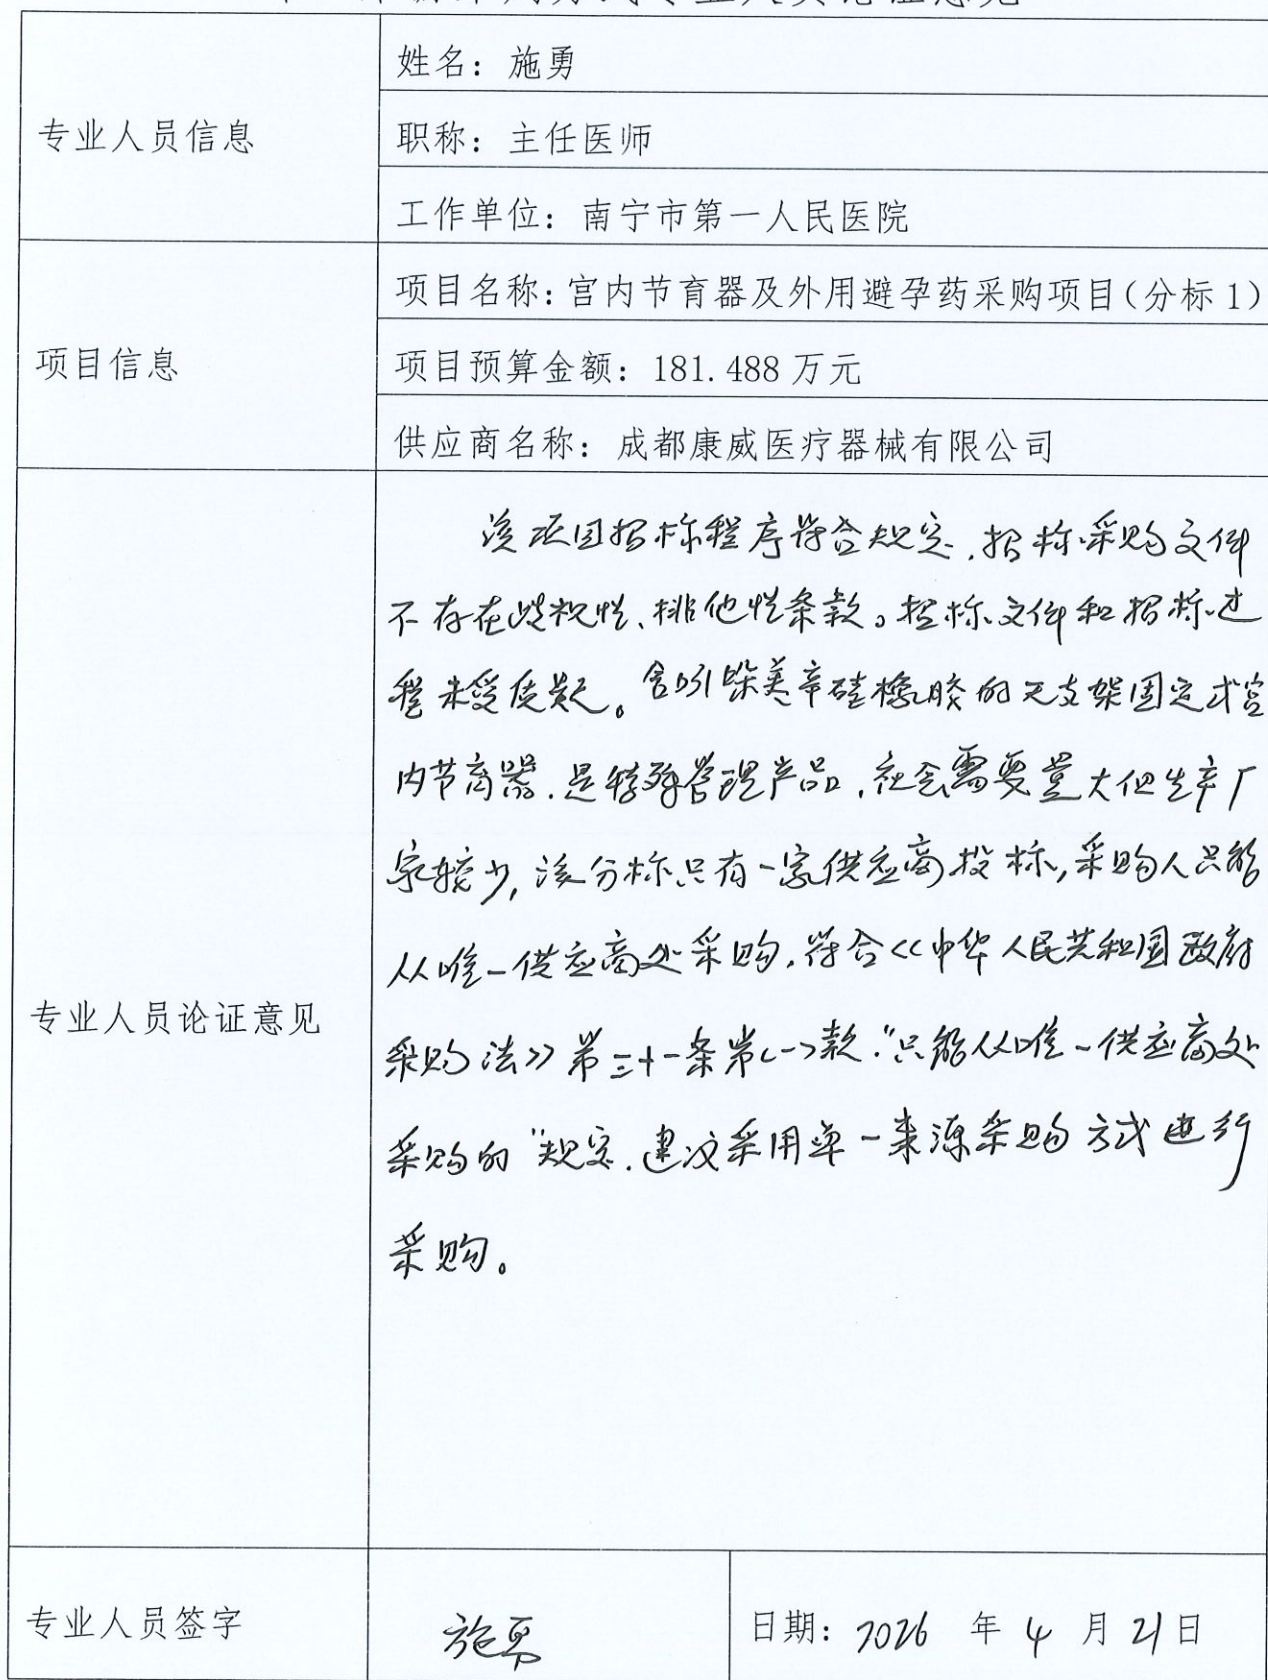 专业人员信息
姓名：施勇
职称：主任医师
工作单位：南宁市第一人民医院
项目信息
项目名称：宫内节育器及外用避孕药采购项目（分标1）
项目预算金额：181.488万元
供应商名称：成都康威医疗器械有限公司
专业人员论证意见
该项目招标程序符合规定，招标采购文件
不存在歧视性、排他性条款。招标文件和招标过
程未受质疑。含吲哚美辛硅橡胶的无支架固定式宫
内节育器，是特殊管理产品，社会需要量大但生产厂
家较少，该分标只有一家供应商投标，采购人只能
从唯一供应商处采购，符合《中华人民共和国政府
采购法》第三十一条第（一）款“只能从唯一供应商处
采购的”规定，建议采用单一来源采购方式进行
采购。
专业人员签字
施勇
日期：2026 年 4 月 21 日